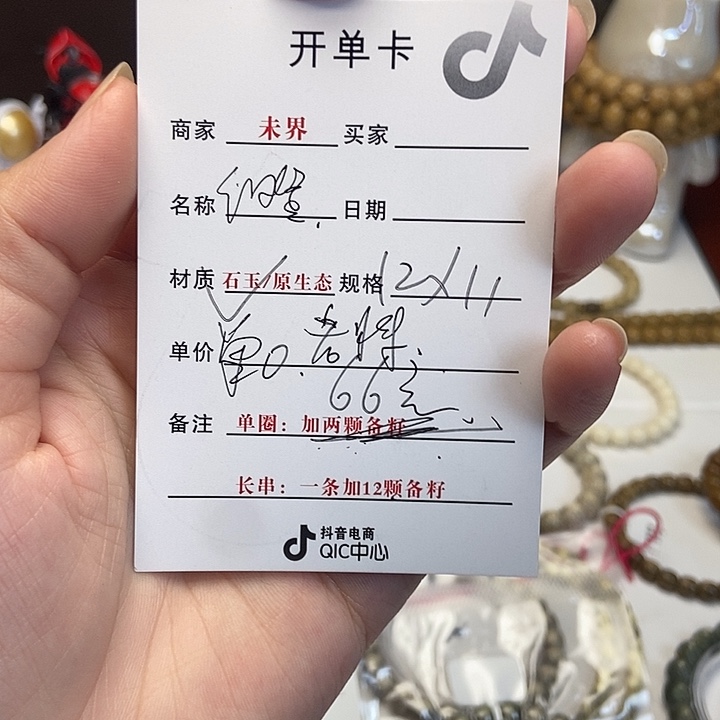 开单卡
商家 未界 买家
名称 日期
材质 石玉/原生态 规格 12×11
单价
66元
备注 单圈：加两颗备籽
长串：一条加12颗备籽
抖音电商
QIC中心